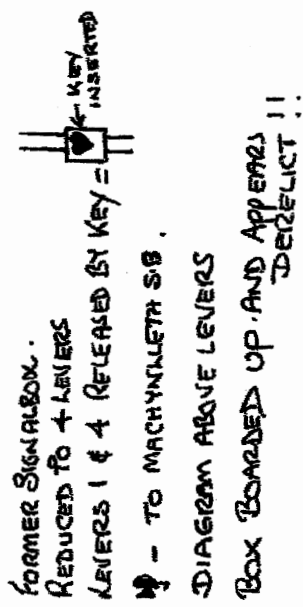 FORMER SIGNALBOX.
REDUCED TO 4 LEVERS
LEVERS 1 & 4 RELEASED BY KEY =
← KEY
INSERTED
- TO MACHYNLLETH S.B.
DIAGRAM ABOVE LEVERS
BOX BOARDED UP. AND APPEARS
DERELICT !!